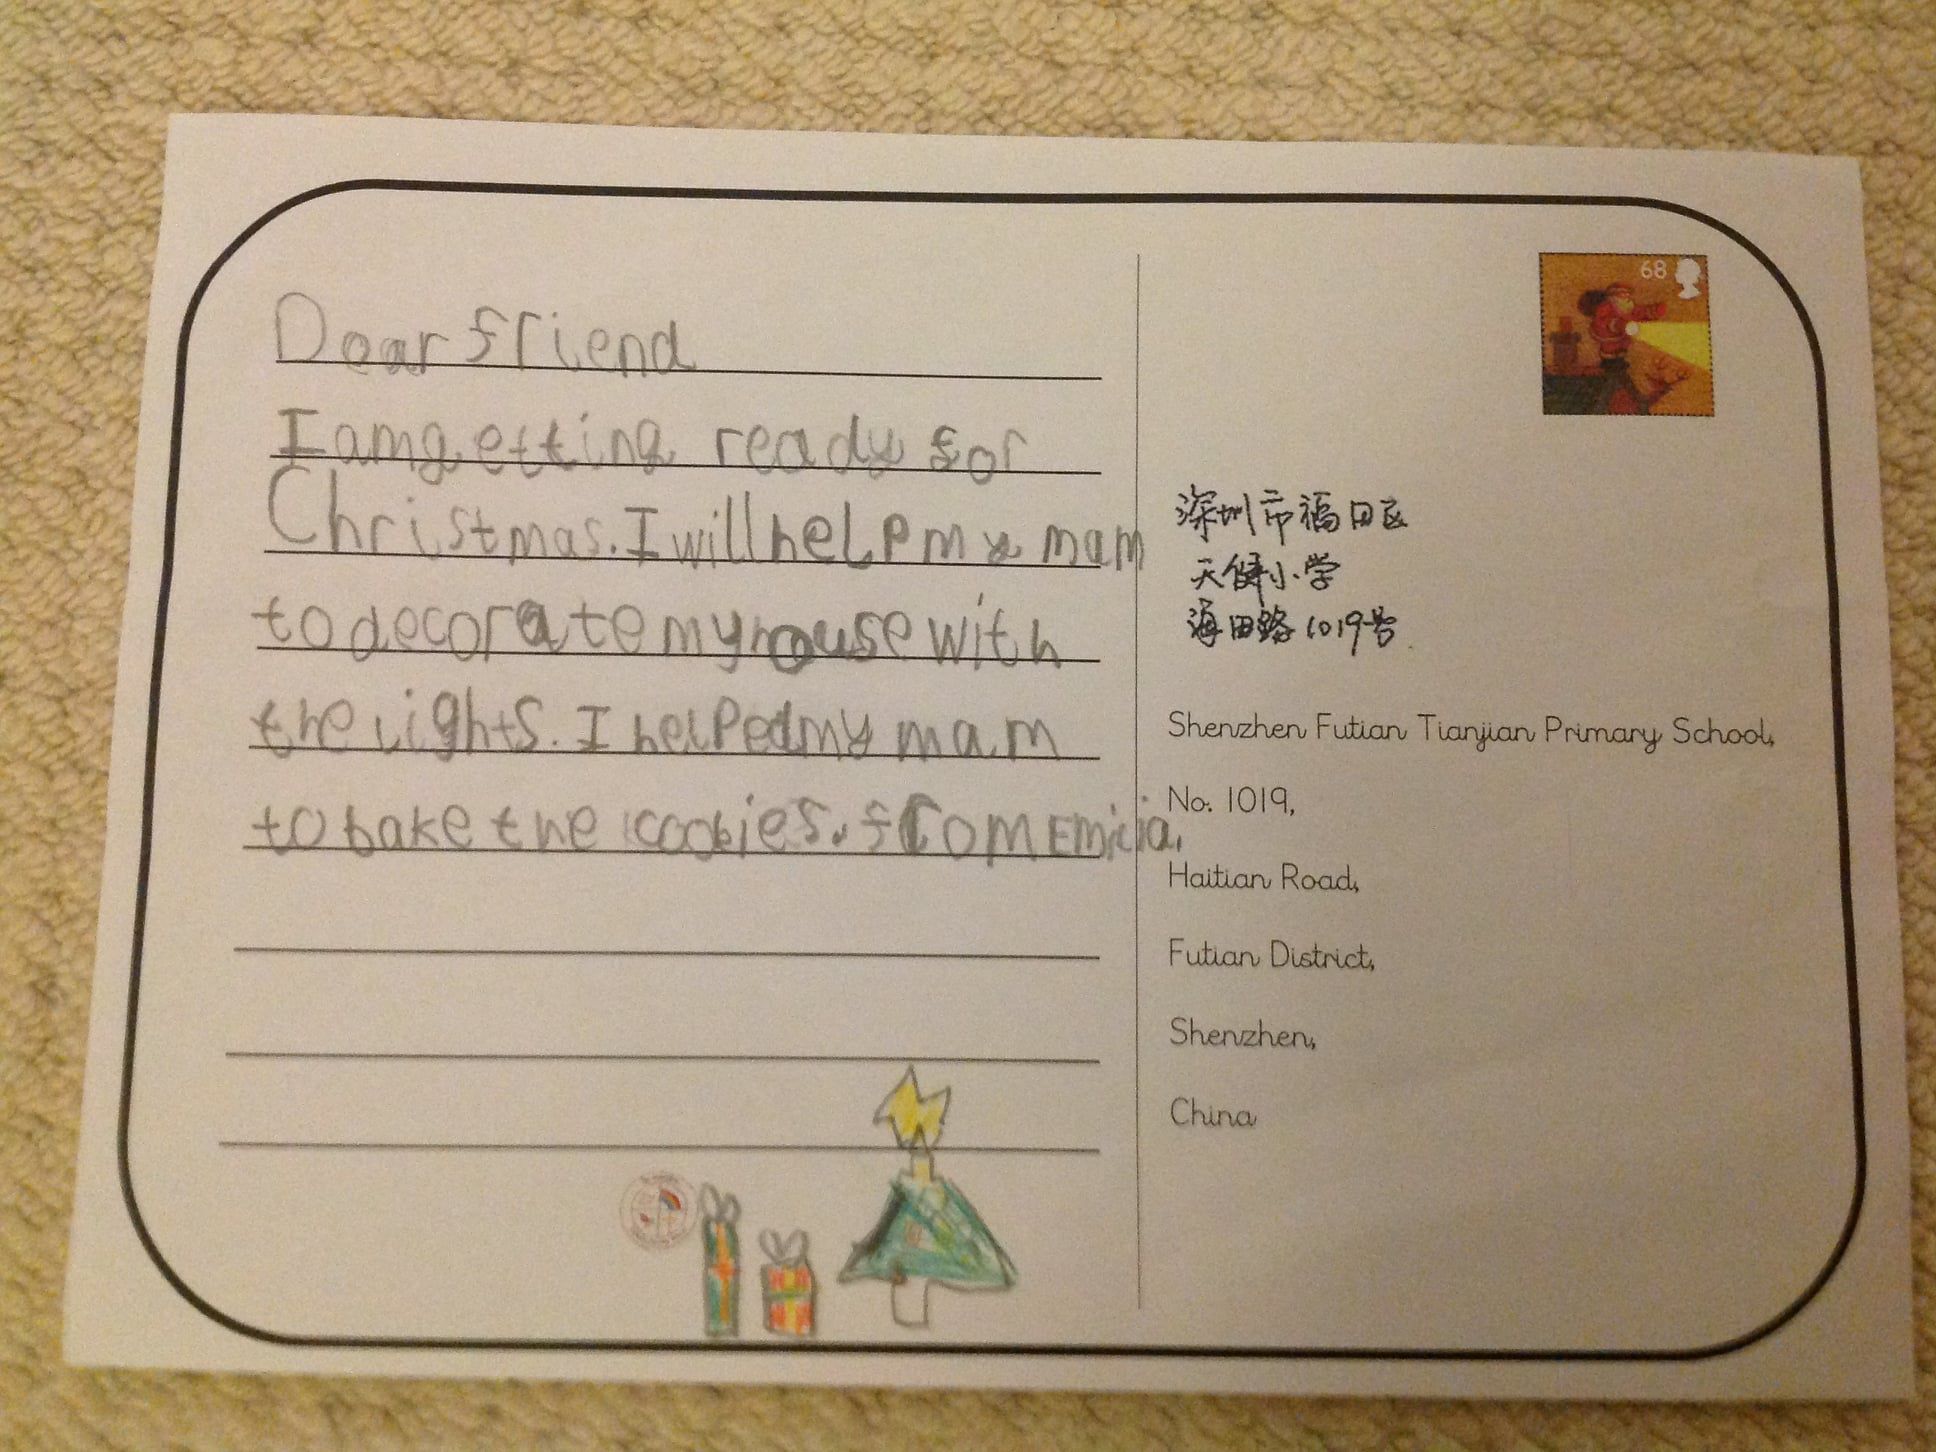 Dear friend
I am getting ready for
Christmas. I will help my mam
to decorate my house with
the lights. I helped my mam
to bake the cookies. from Emilia.
68
深圳市福田区
天健小学
海田路1019号
Shenzhen Futian Tianjian Primary School,
No. 1019,
Haitian Road,
Futian District,
Shenzhen,
China